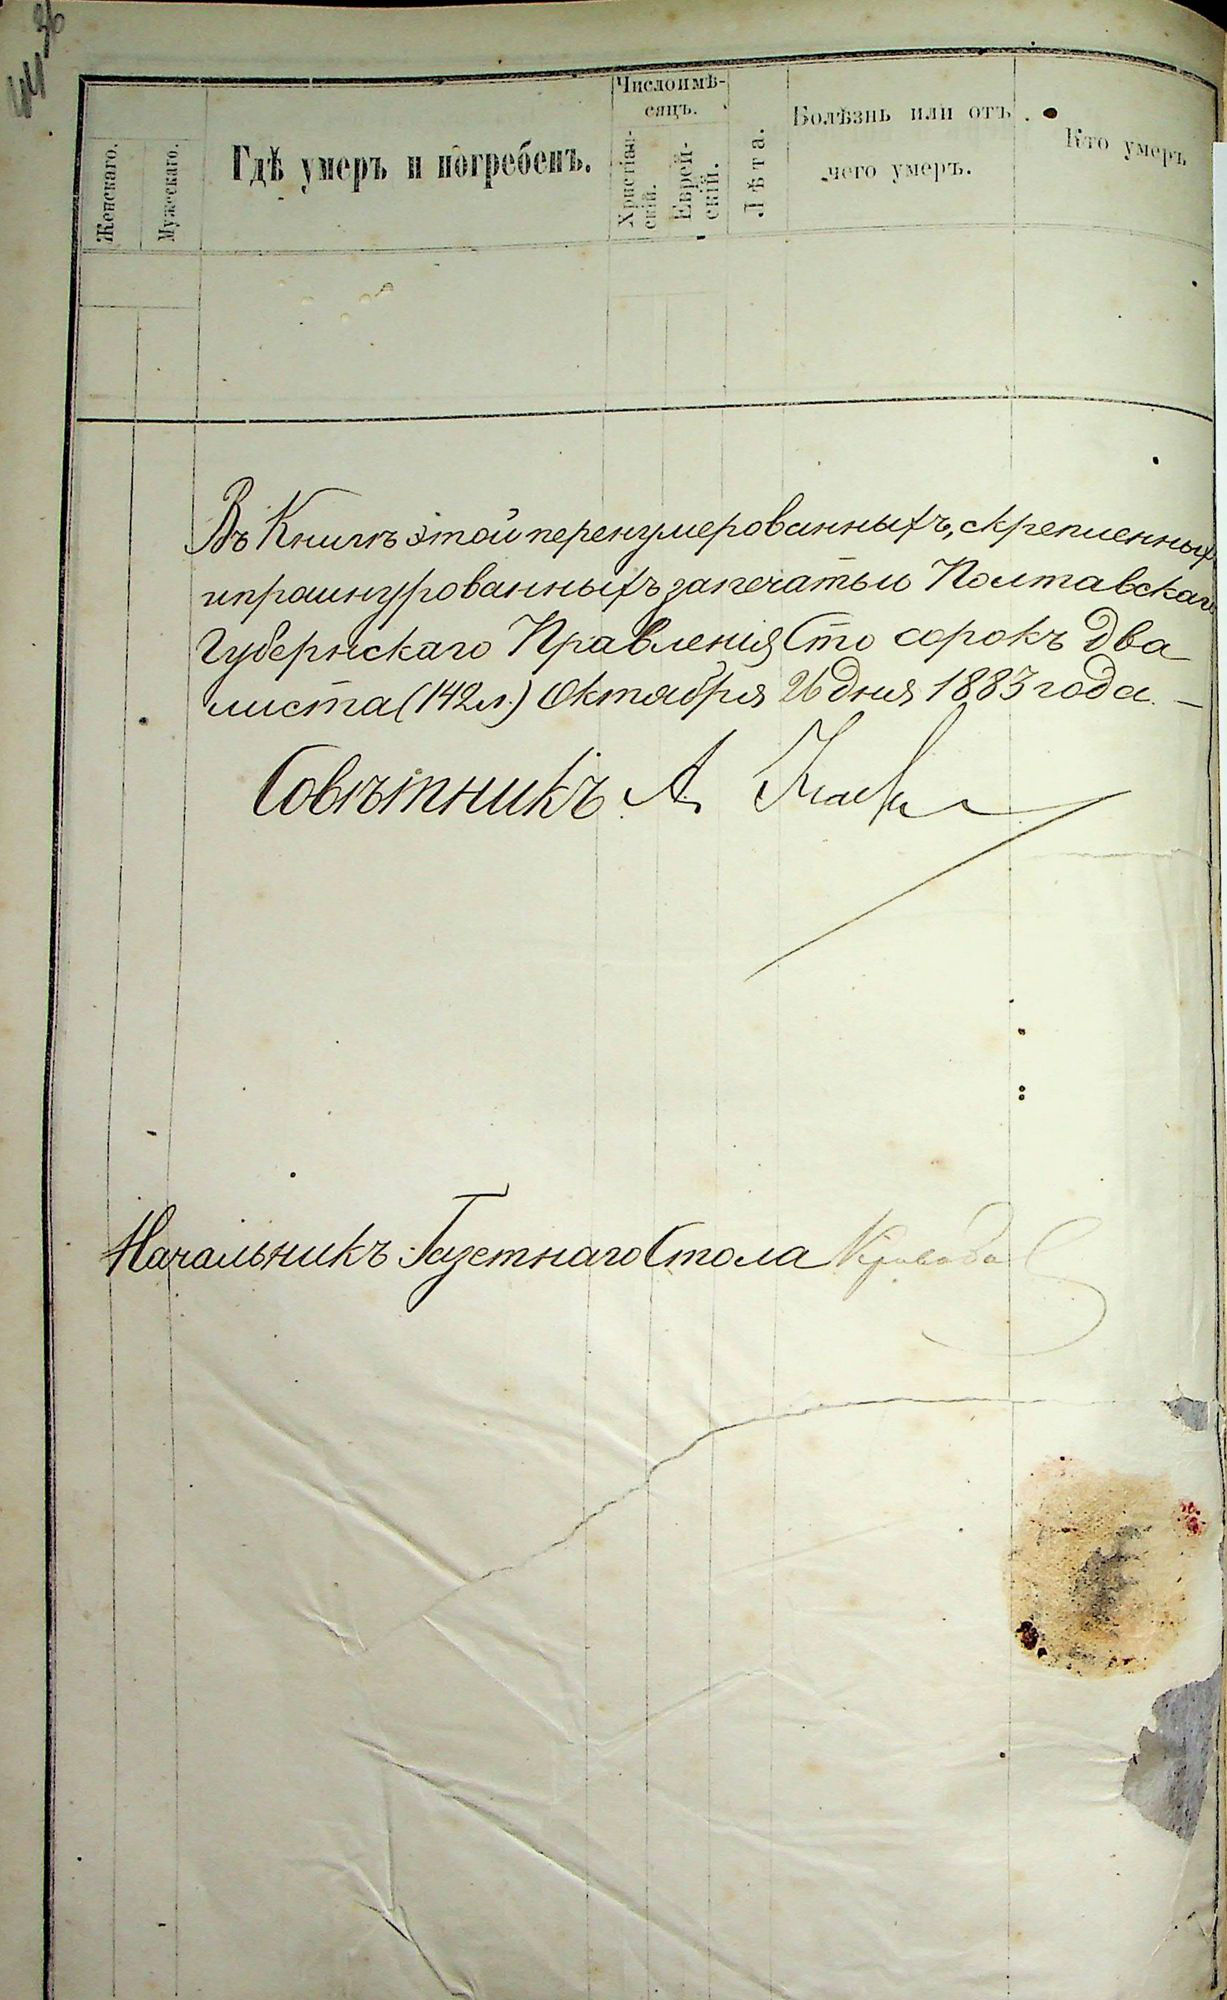 36
144
Женскаго.
Мужескаго.
Гдѣ умеръ и погребенъ.
Число и мѣ-
сяцъ.
Христіан-
скій.
Еврей-
скій.
Лѣта.
Болѣзнь или отъ
чего умеръ.
Кто умеръ
Въ Книгѣ этой перенумерованныхъ, скрепленныхъ
и прошнурованныхъ за печатью Полтавскаго
Губернскаго Правленія Сто сорокъ два
листа (142 л.) Октября 26 дня 1883 года. —
Совѣтникъ А.
Начальникъ Газетнаго Стола